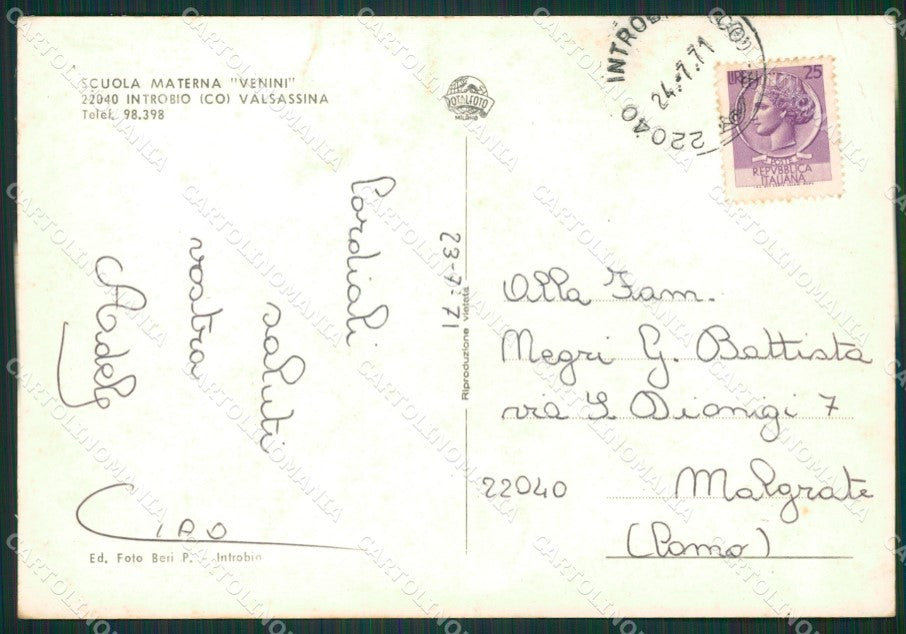 SCUOLA MATERNA "VENINI"
22040 INTROBIO (CO) VALSASSINA
Telef. 98.398
TOTALFOTO
MILANO
22040 INTROBIO (CO)
24.-7.71
LIRE 25
POSTE
REPVBBLICA
ITALIANA
23-7-71
Cordiali
saluti
vostra
Adele
CIAO
Riproduzione vietata
Alla Fam.
Negri G. Battista
via S. Dionigi 7
22040 Malgrate
(Como)
Ed. Foto Beri P. Introbio
CARTOLINOMANIA